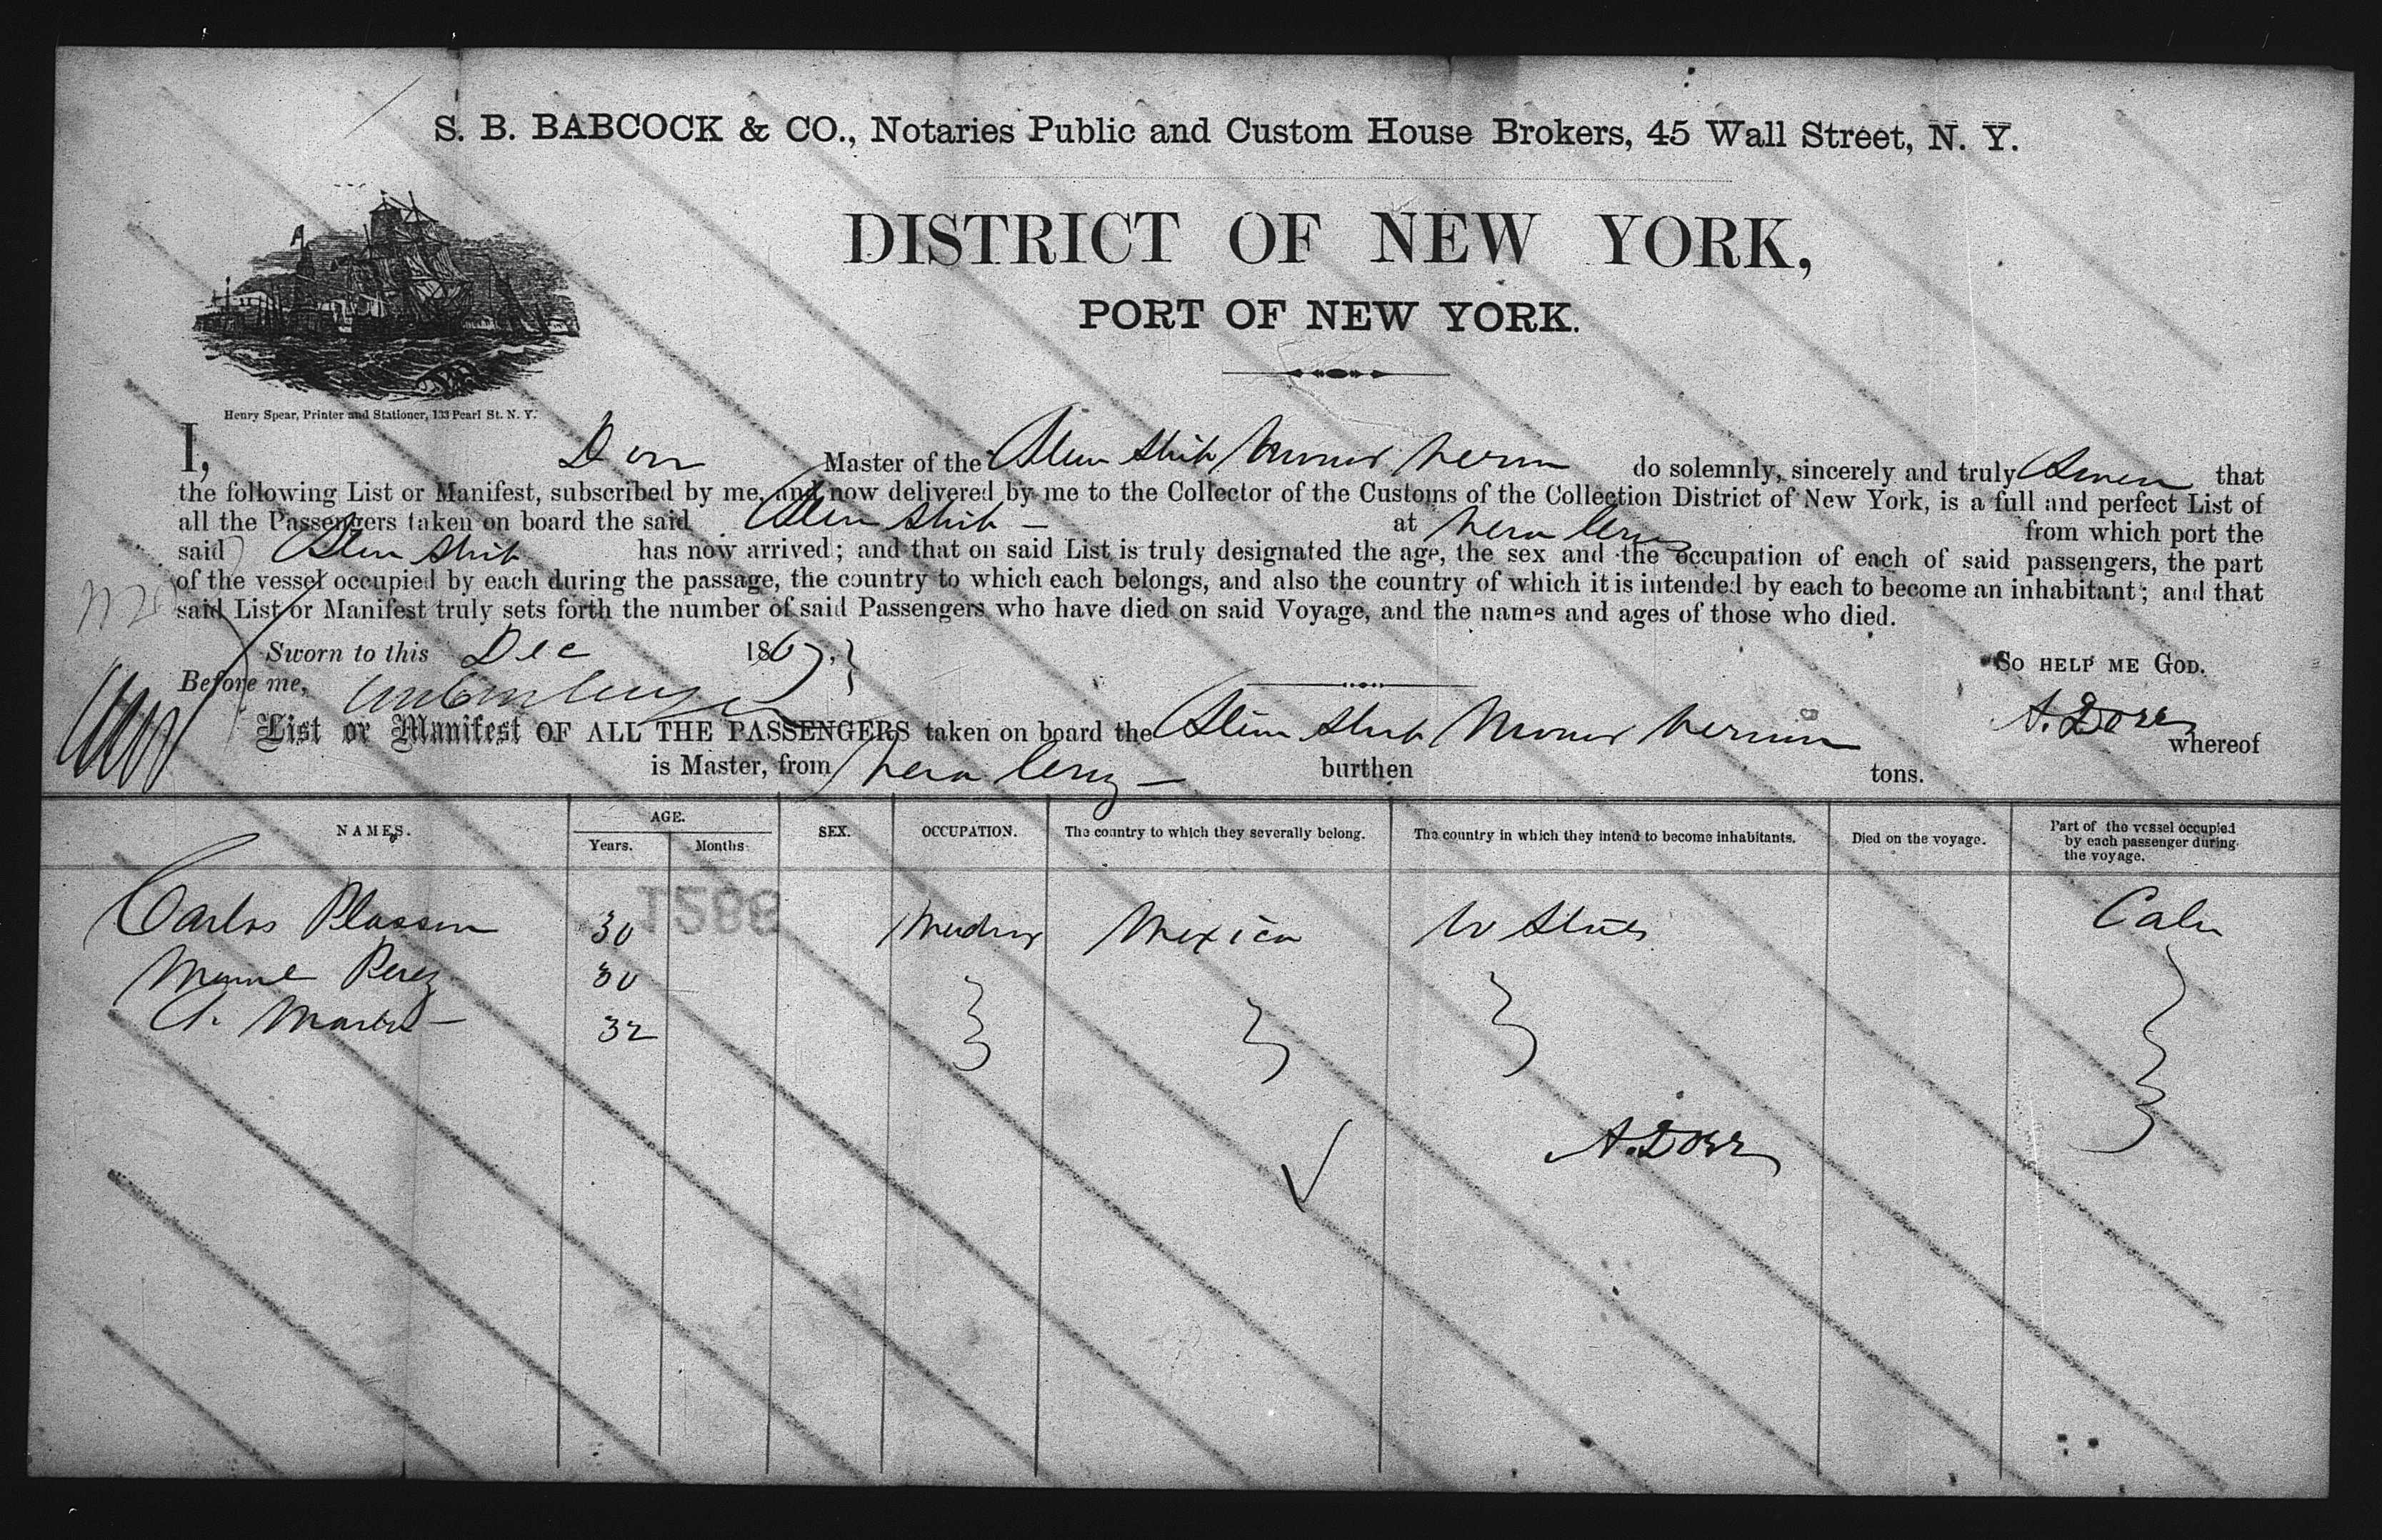 S. B. BABCOCK & CO., Notaries Public and Custom House Brokers, 45 Wall Street, N. Y.
DISTRICT OF NEW YORK,
PORT OF NEW YORK.
Henry Spear, Printer and Stationer, 133 Pearl St. N. Y.
I, Master of the do solemnly, sincerely and truly that
the following List or Manifest, subscribed by me, and now delivered by me to the Collector of the Customs of the Collection District of New York, is a full and perfect List of
all the Passengers taken on board the said Stm Ship at Vera Cruz from which port the
said Stm Ship has now arrived; and that on said List is truly designated the age, the sex and the occupation of each of said passengers, the part
of the vessel occupied by each during the passage, the country to which each belongs, and also the country of which it is intended by each to become an inhabitant; and that
said List or Manifest truly sets forth the number of said Passengers who have died on said Voyage, and the names and ages of those who died.
Sworn to this Dec 1867, SO HELP ME GOD.
Before me,
List or Manifest OF ALL THE PASSENGERS taken on board the A. Dorr whereof
is Master, from Vera Cruz burthen tons.
NAMES. AGE. SEX. OCCUPATION. The country to which they severally belong. The country in which they intend to become inhabitants. Died on the voyage. Part of the vessel occupied by each passenger during the voyage.
Years. Months
1588
Carlos 30 Mexico U States
Perez 30
A. 32
A. Dorr